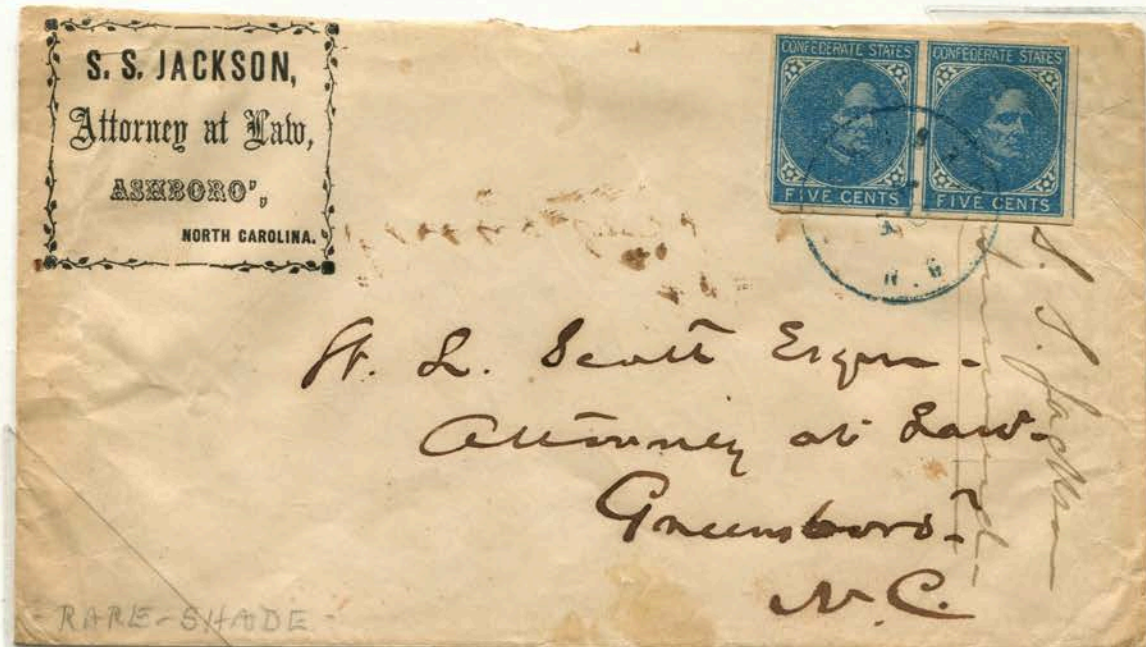 S. S. JACKSON,
Attorney at Law,
ASHBORO',
NORTH CAROLINA.
CONFEDERATE STATES
FIVE CENTS
CONFEDERATE STATES
FIVE CENTS
N. C
W. L. Scott Esqr.
Attorney at Law.
Greensboro.
N. C.
S. S. Jackson
- RARE-SHADE -